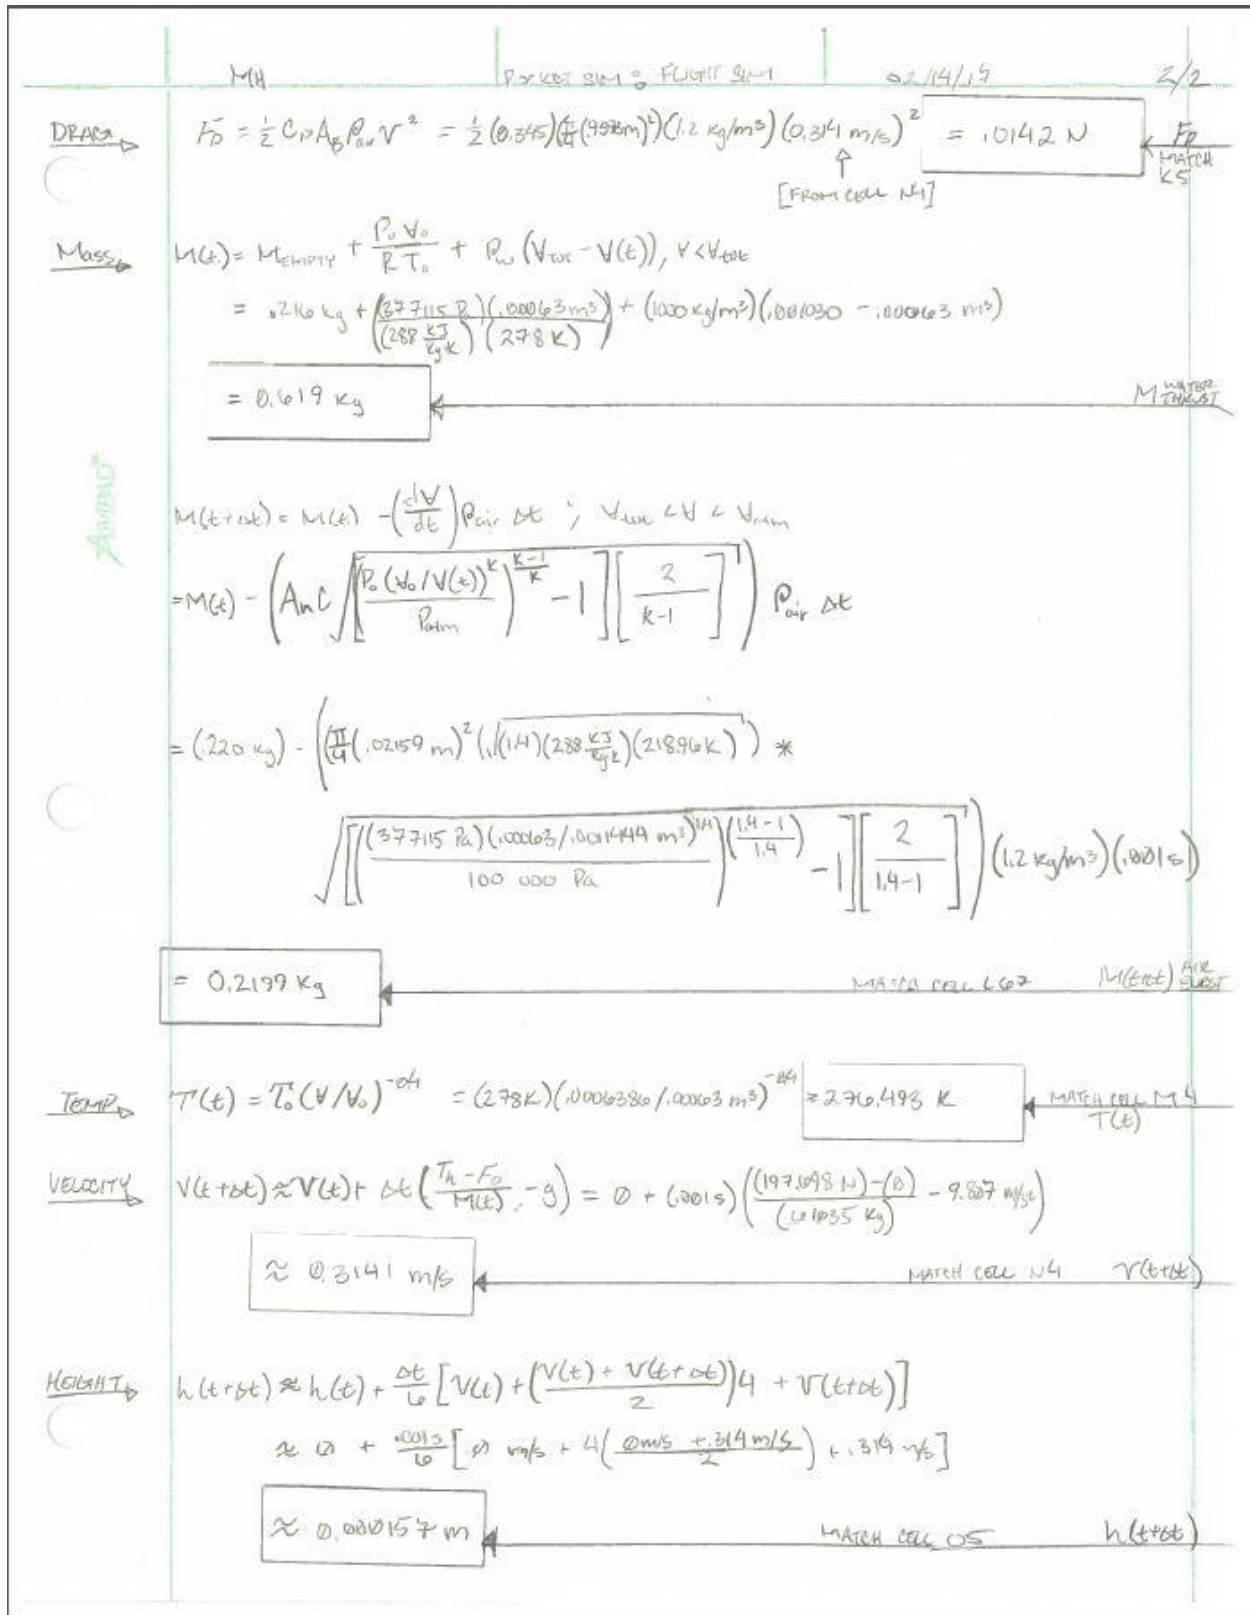 MH ROCKET SIM : FLIGHT SIM 2/2
DRAG F_D = ½ C_D A_B ρ_air V² = ½ (0.345)( (1.2 kg/m³) (0.314 m/s)² = .0142 N F_D
MATCH K5
[FROM CELL N4]
MASS M(t) = M_EMPTY + P₀V₀/RT₀ + ρ_w (V_TOT - V(t)), V < V_tot
= .216 kg + (377115 Pa)(.00063 m³)/((288 kJ/kg K)(278 K)) + (1000 kg/m³)(.001030 - .00063 m³)
= 0.619 kg M WATER THRUST
AMPAD
M(t+Δt) = M(t) - (dV/dt) ρ_air Δt ; V_tot < V <
= M(t) - (A_n C √[(P₀(V₀/V(t))^k / P_atm)^((k-1)/k) - 1][2/(k-1)]) ρ_air Δt
= (.220 kg) - ((π/4 (.02159 m)² (√(1.4)(288 kJ/kg K)(218.96 K)) *
√[((377115 Pa)(.00063/.001444 m³)^1.4 / 100 000 Pa)^((1.4-1)/1.4) - 1][2/(1.4-1)]) (1.2 kg/m³)(.001 s)
= 0.2199 kg MATCH CELL L67 M(t+Δt) AIR BURST
TEMP T(t) = T₀ (V/V₀)^-0.4 = (278K)(.0006386/.00063 m³)^-0.4 = 276.493 K MATCH CELL M4
T(t)
VELOCITY V(t+Δt) ≈ V(t) + Δt (Th - F_D / M(t) - g) = 0 + (.001s) ((197.698 N) - (0) / ( kg) - 9.807 m/s²)
≈ 0.3141 m/s MATCH CELL N4 V(t+Δt)
HEIGHT h(t+Δt) ≈ h(t) + Δt/6 [V(t) + (V(t) + V(t+Δt) / 2)4 + V(t+Δt)]
≈ 0 + .001s/6 [0 m/s + 4(0 m/s + .314 m/s / 2) + .314 m/s]
≈ 0.000157 m MATCH CELL O5 h(t+Δt)